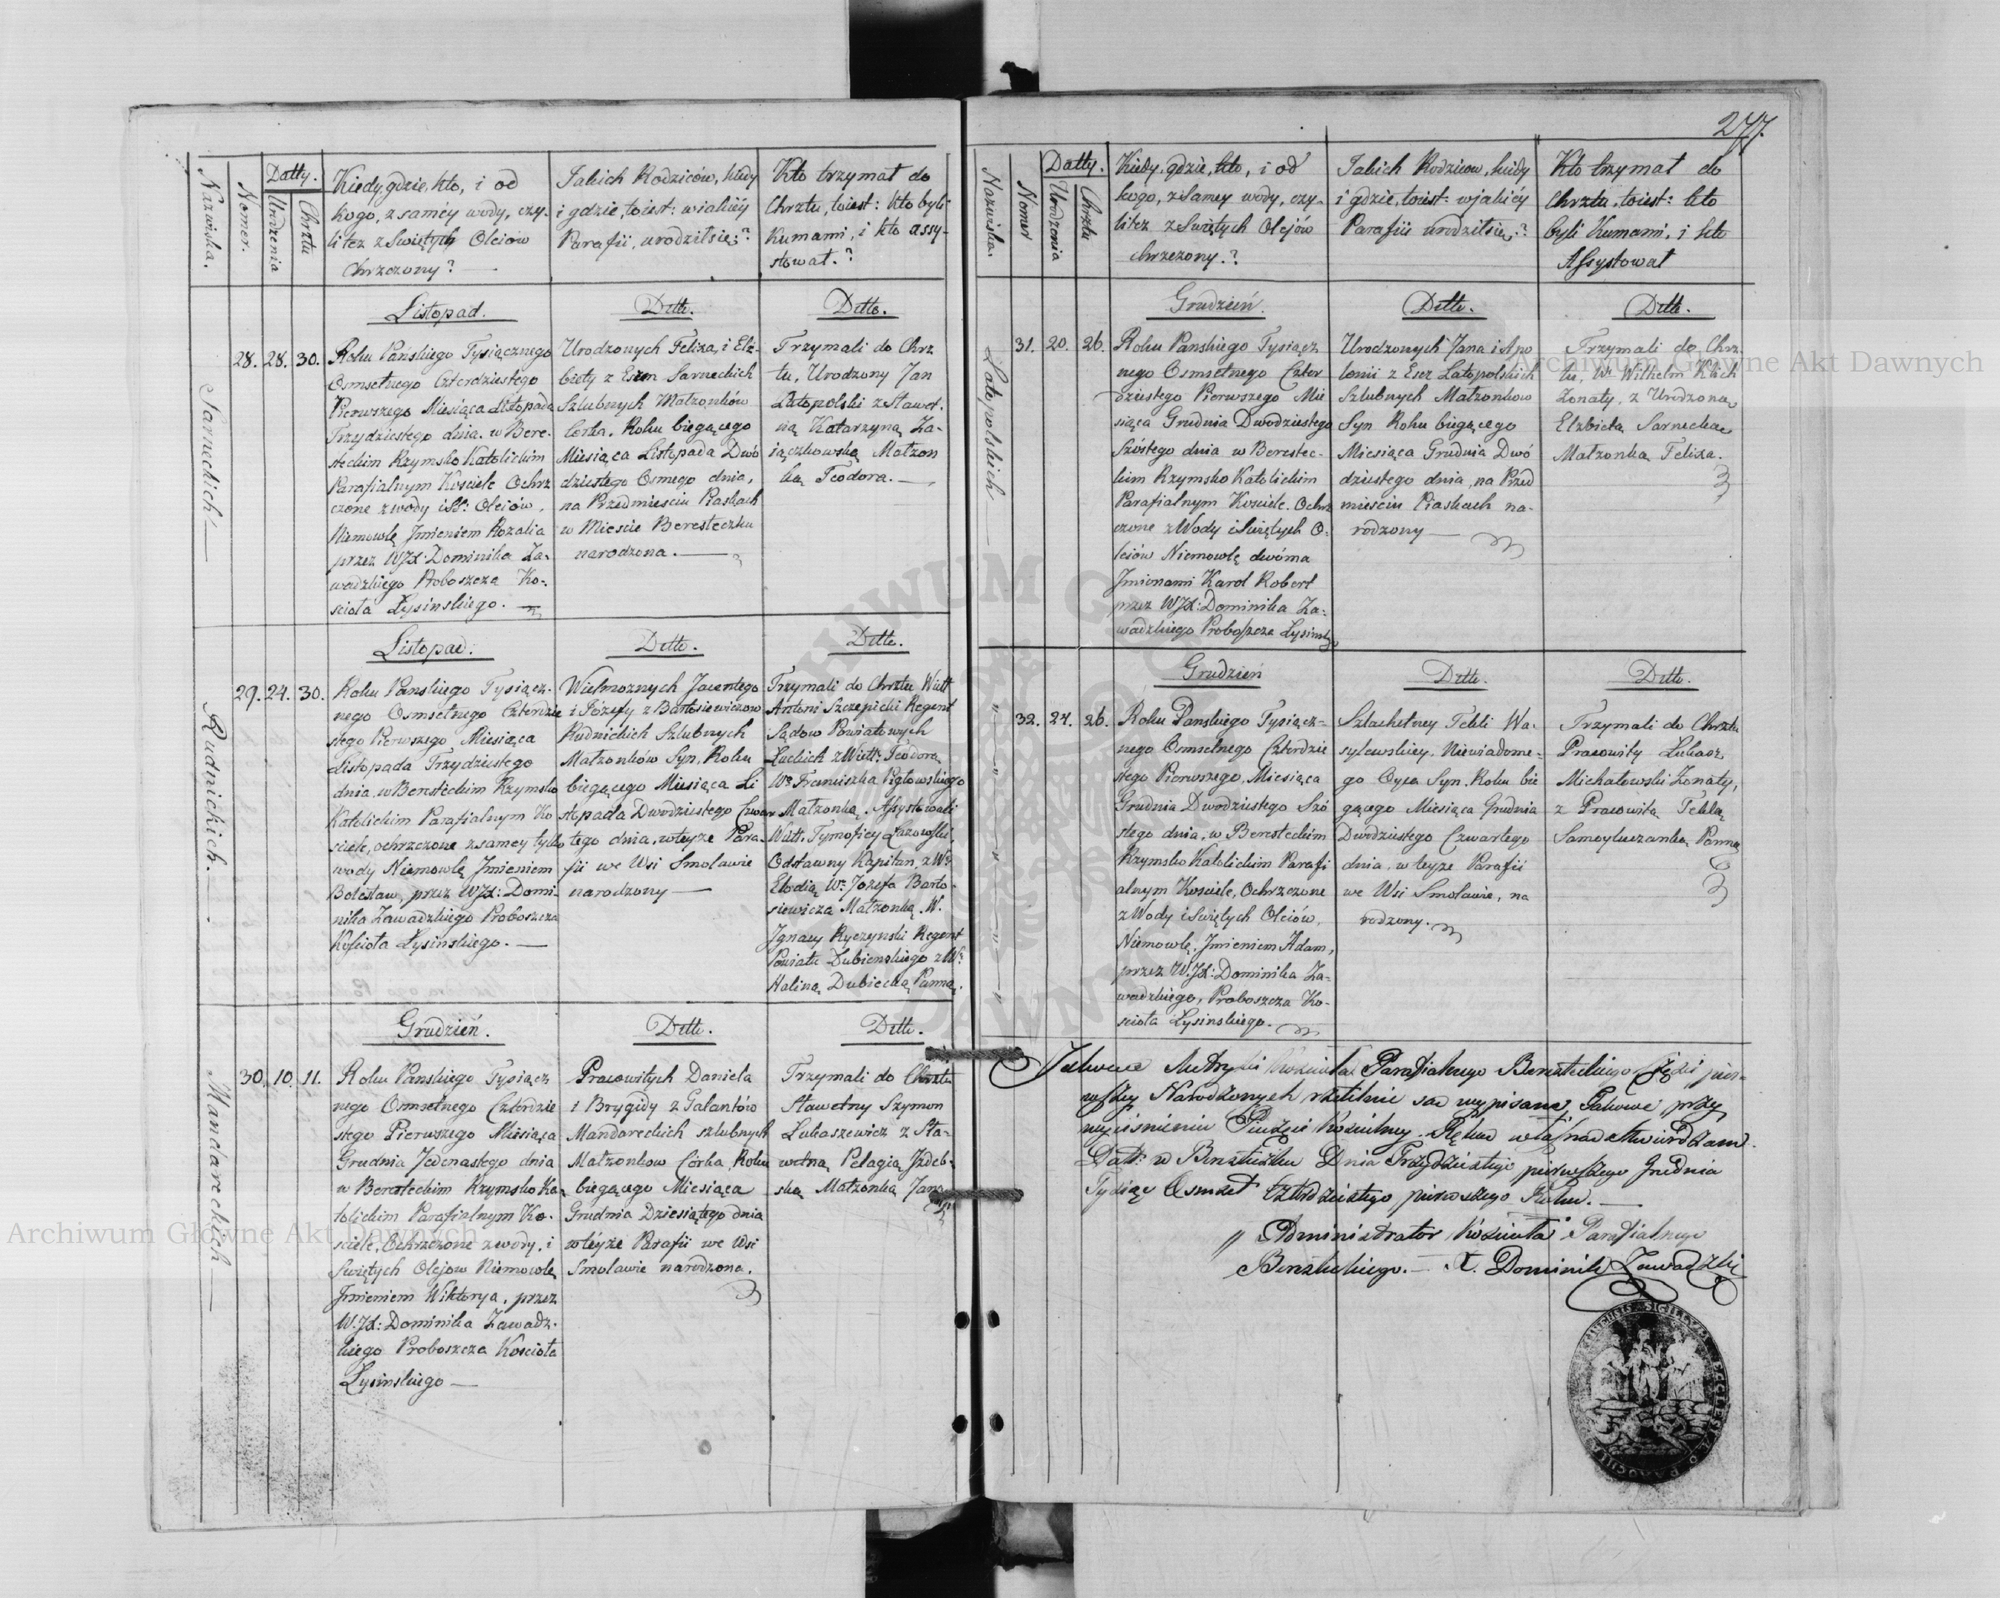 277.
Nazwiska.
Nomer.
Datty.
Urodzenia
Chrztu
Kiedy, gdzie, kto, i od
kogo, z saméy wody, czy-
li téz z Swiętych Oleiów
Chrzczony?
Jakich Rodziców, kiedy
i gdzie, toiest: w iakiéy
Parafii, urodził się?
Kto trzymał do
Chrztu, toiest: kto byli
Kumami, i kto assy-
stował.?
Sarneckich
28. 28. 30.
Listopad.
Roku Pańskiego Tysiącznego
Osmsetnego Czterdziestego
Pierwszego Miesiąca Listopada
Trzydziestego dnia w Bere-
steckim Rzymsko Katolickim
Parafialnym Kościele Ochrz
czone z wody i SS: Oleiów,
Niemowlę Jmieniem Rozalia
przez WJX: Dominika Za-
wadzkiego Proboszcza Ko-
scioła Łysinskiego.
Dette.
Urodzonych Felixa, i Elż-
biety z Esm Sarneckich
Szlubnych Małzonków
Corka, Roku biegącego
Miesiąca Listopada Dwó
dziestego Osmego dnia,
na Przedmiesciu Piaskach
w Miescie Beresteczku
narodzona.
Dette.
Trzymali do Chrz
tu, Urodzony Jan
Latopolski z Sławet-
ną Katarzyną Za-
iączkowską Małzon
ką Teodora.
Rudnickich.
29. 24. 30.
Listopad.
Roku Panskiego Tysiącz-
nego Osmsetnego Czterdzie
stego Pierwszego Miesiąca
Listopada Trzydziestego
dnia, w Beresteckim Rzymsko
Katolickim Parafialnym Ko
sciele, ochrzczone z samey tylko
wody Niemowlę Jmieniem
Bolesław, przez WJX: Domi-
nika Zawadzkiego Proboszcza
Kościoła Łysinskiego.
Dette.
Wielmoznych Jacentego
i Józefy z Bartosiewiczow
Rudnickich Szlubnych
Małzonków Syn, Roku
biegącego Miesiąca Li
stopada Dwodziestego Czwar
tego dnia, w teyze Para-
fii we Wsi Smolawie
narodzony
Dette.
Trzymali do Chrztu Wiel
Antoni Szczepicki Regent
Sądow Powiatowych
Łuckich z Wiel: Teodorą
Wo Franciszka Pigłowskiego
Małzonką. Assystowali
Wiel: Tymofiey Łazowski
Odstawny Kapitan, z Wo
Elodią Wo Jozefa Barto-
siewicza Małzonką. W.
Jgnacy Ryczynski Regent
Powiatu Dubienskiego z Wo
Haliną Dubiecką Panną.
Mandareckich
30. 10. 11.
Grudzień.
Roku Panskiego Tysiącz
nego Osmsetnego Czterdzie
stego Pierwszego Miesiąca
Grudnia Jedenastego dnia
w Beresteckim Rzymsko Ka-
tolickim Parafialnym Ko-
sciele, Ochrzczone z wody, i
Swiętych Olejow Niemowlę
Jmieniem Wiktorya, przez
W.JX: Dominika Zawadz-
kiego Proboszcza Koscioła
Łysinskiego
Dette.
Pracowitych Daniela
i Brygidy z Galantów
Mandareckich szlubnych
Małzonkow Córka, Roku
biegącego Miesiąca
Grudnia Dziesiątego dnia
w téyze Parafii we Wsi
Smolawie narodzona.
Dette.
Trzymali do Chrztu
Sławetny Szymon
Łukaszewicz z Sła-
wetną Pelagią Jzdeb-
ską Małzonką Jana
Nazwiska.
Nomer
Datty.
Urodzenia
Chrztu
Kiedy, gdzie, kto, i od
kogo, z Samey wody, czy-
li téz z Swiętych Olejów
chrzczony.?
Jakich Rodzicow, kiedy
i gdzie, toiest: w jakiéy
Parafii urodził się.?
Kto trzymał do
Chrztu, toiest: kto
byli Kumami, i kto
Assystował
Latopolskich
31. 20. 26.
Grudzień.
Roku Panskiego Tysiącz
nego Osmsetnego Czter
dziestego Pierwszego Mie
siąca Grudnia Dwodziestego
Szóstego dnia w Berestec-
kim Rzymsko Katolickim
Parafialnym Kosciele. Ochrz
czone z Wody i Swiętych O-
leiów Niemowlę dwóma
Jmionami Karol Robert
przez WJX: Dominika Za-
wadzkiego Proboszcza Łysinsk
Dette.
Urodzonych Jana i Apo
lonii z Esz Latopolskich
Szlubnych Małzonkow
Syn Roku biegącego
Miesiąca Grudnia Dwó
dziestego dnia, na Przed
miesciu Piaskach na-
rodzony
Dette.
Trzymali do Chrz
tu, Wo Wilhelm Klich
Zonaty, z Urodzoną
Elzbietą Sarnecką
Małzonką Felixa.
32. 24. 26.
Grudzień
Roku Panskiego Tysiącz-
nego Osmsetnego Czterdzie
stego Pierwszego, Miesiąca
Grudnia Dwodziestego Szó
stego dnia, w Beresteckim
Rzymsko Katolickim Parafi
alnym Kosciele, Ochrzczone
z Wody i Swiętych Oleiów,
Niemowlę, Jmieniem Adam,
przez W.JX: Dominika Za-
wadzkiego, Proboszcza Ko-
scioła Łysinskiego.
Dette.
Szlachetney Tekli Wa-
sylewskiey, Niewiadome-
go Oyca Syn, Roku bie
gącego Miesiąca Grudnia
Dwodziestego Czwartego
dnia, w teyze Parafii
we Wsi Smolawie, na
rodzony.
Dette.
Trzymali do Chrztu
Pracowity Łukasz
Michałowski Zonaty,
z Pracowitą Teklą
Samoyluczanką Panną
Jakowe Metryki Kościoła Parafialnego Beresteckiego Częśći pier-
wszey Narodzonych rzetelnie są wypisane, Takowe przy
wyciśnieniu Pieczęci Kościelney, Ręką własną stwierdzam.
Datt: w Beresteczku Dnia Trzydziestego pierwszego Grudnia
Tysiąc Osmset Czterdziestego pierwszego Roku.
Administrator Kościoła Parafialnego
Beresteckiego. X. Dominik Zawadzki
SIGILLUM ECCLESIÆ PAROCHIA
Archiwum Główne Akt Dawnych
Archiwum Główne Akt Dawnych